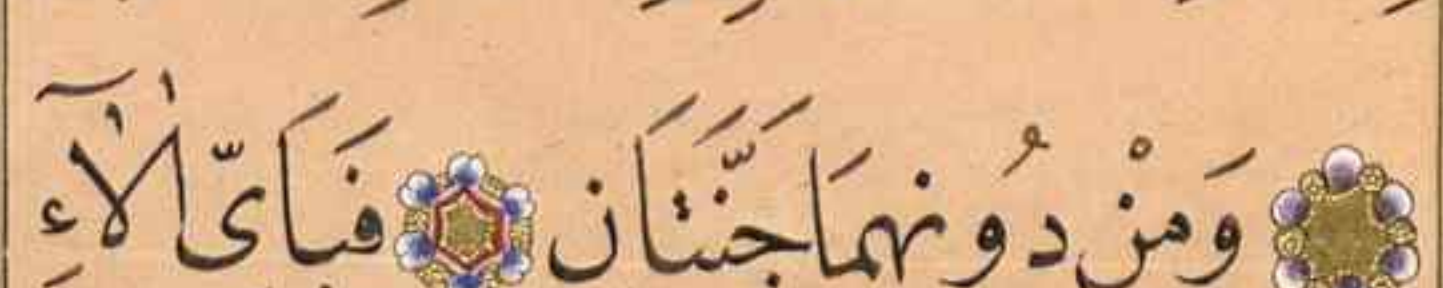 وَمِنْ دُونِهِمَا جَنَّتَانِ فَبِأَىِّ اٰلَآءِ